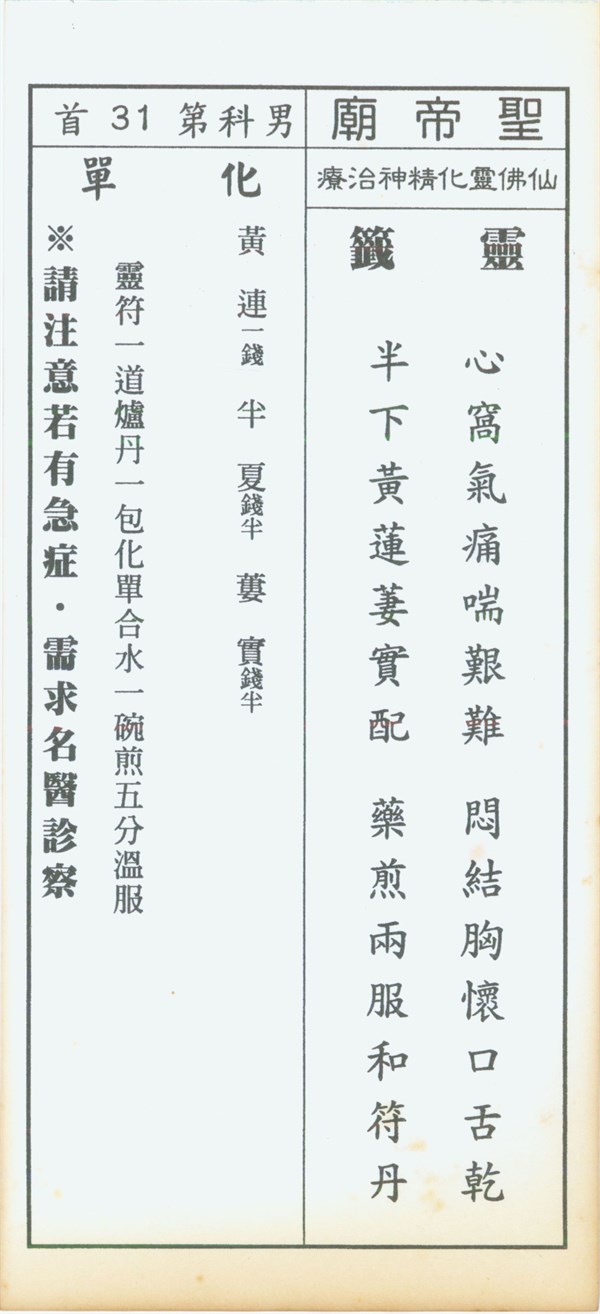 聖帝廟
仙佛靈化精神治療
靈籤
心窩氣痛喘艱難 悶結胸懷口舌乾
半下黃蓮萋實配 藥煎兩服和符丹
男科第31首
化單
黃連一錢 半夏錢半 蔞實錢半
靈符一道爐丹一包化單合水一碗煎五分溫服
※請注意若有急症・需求名醫診察